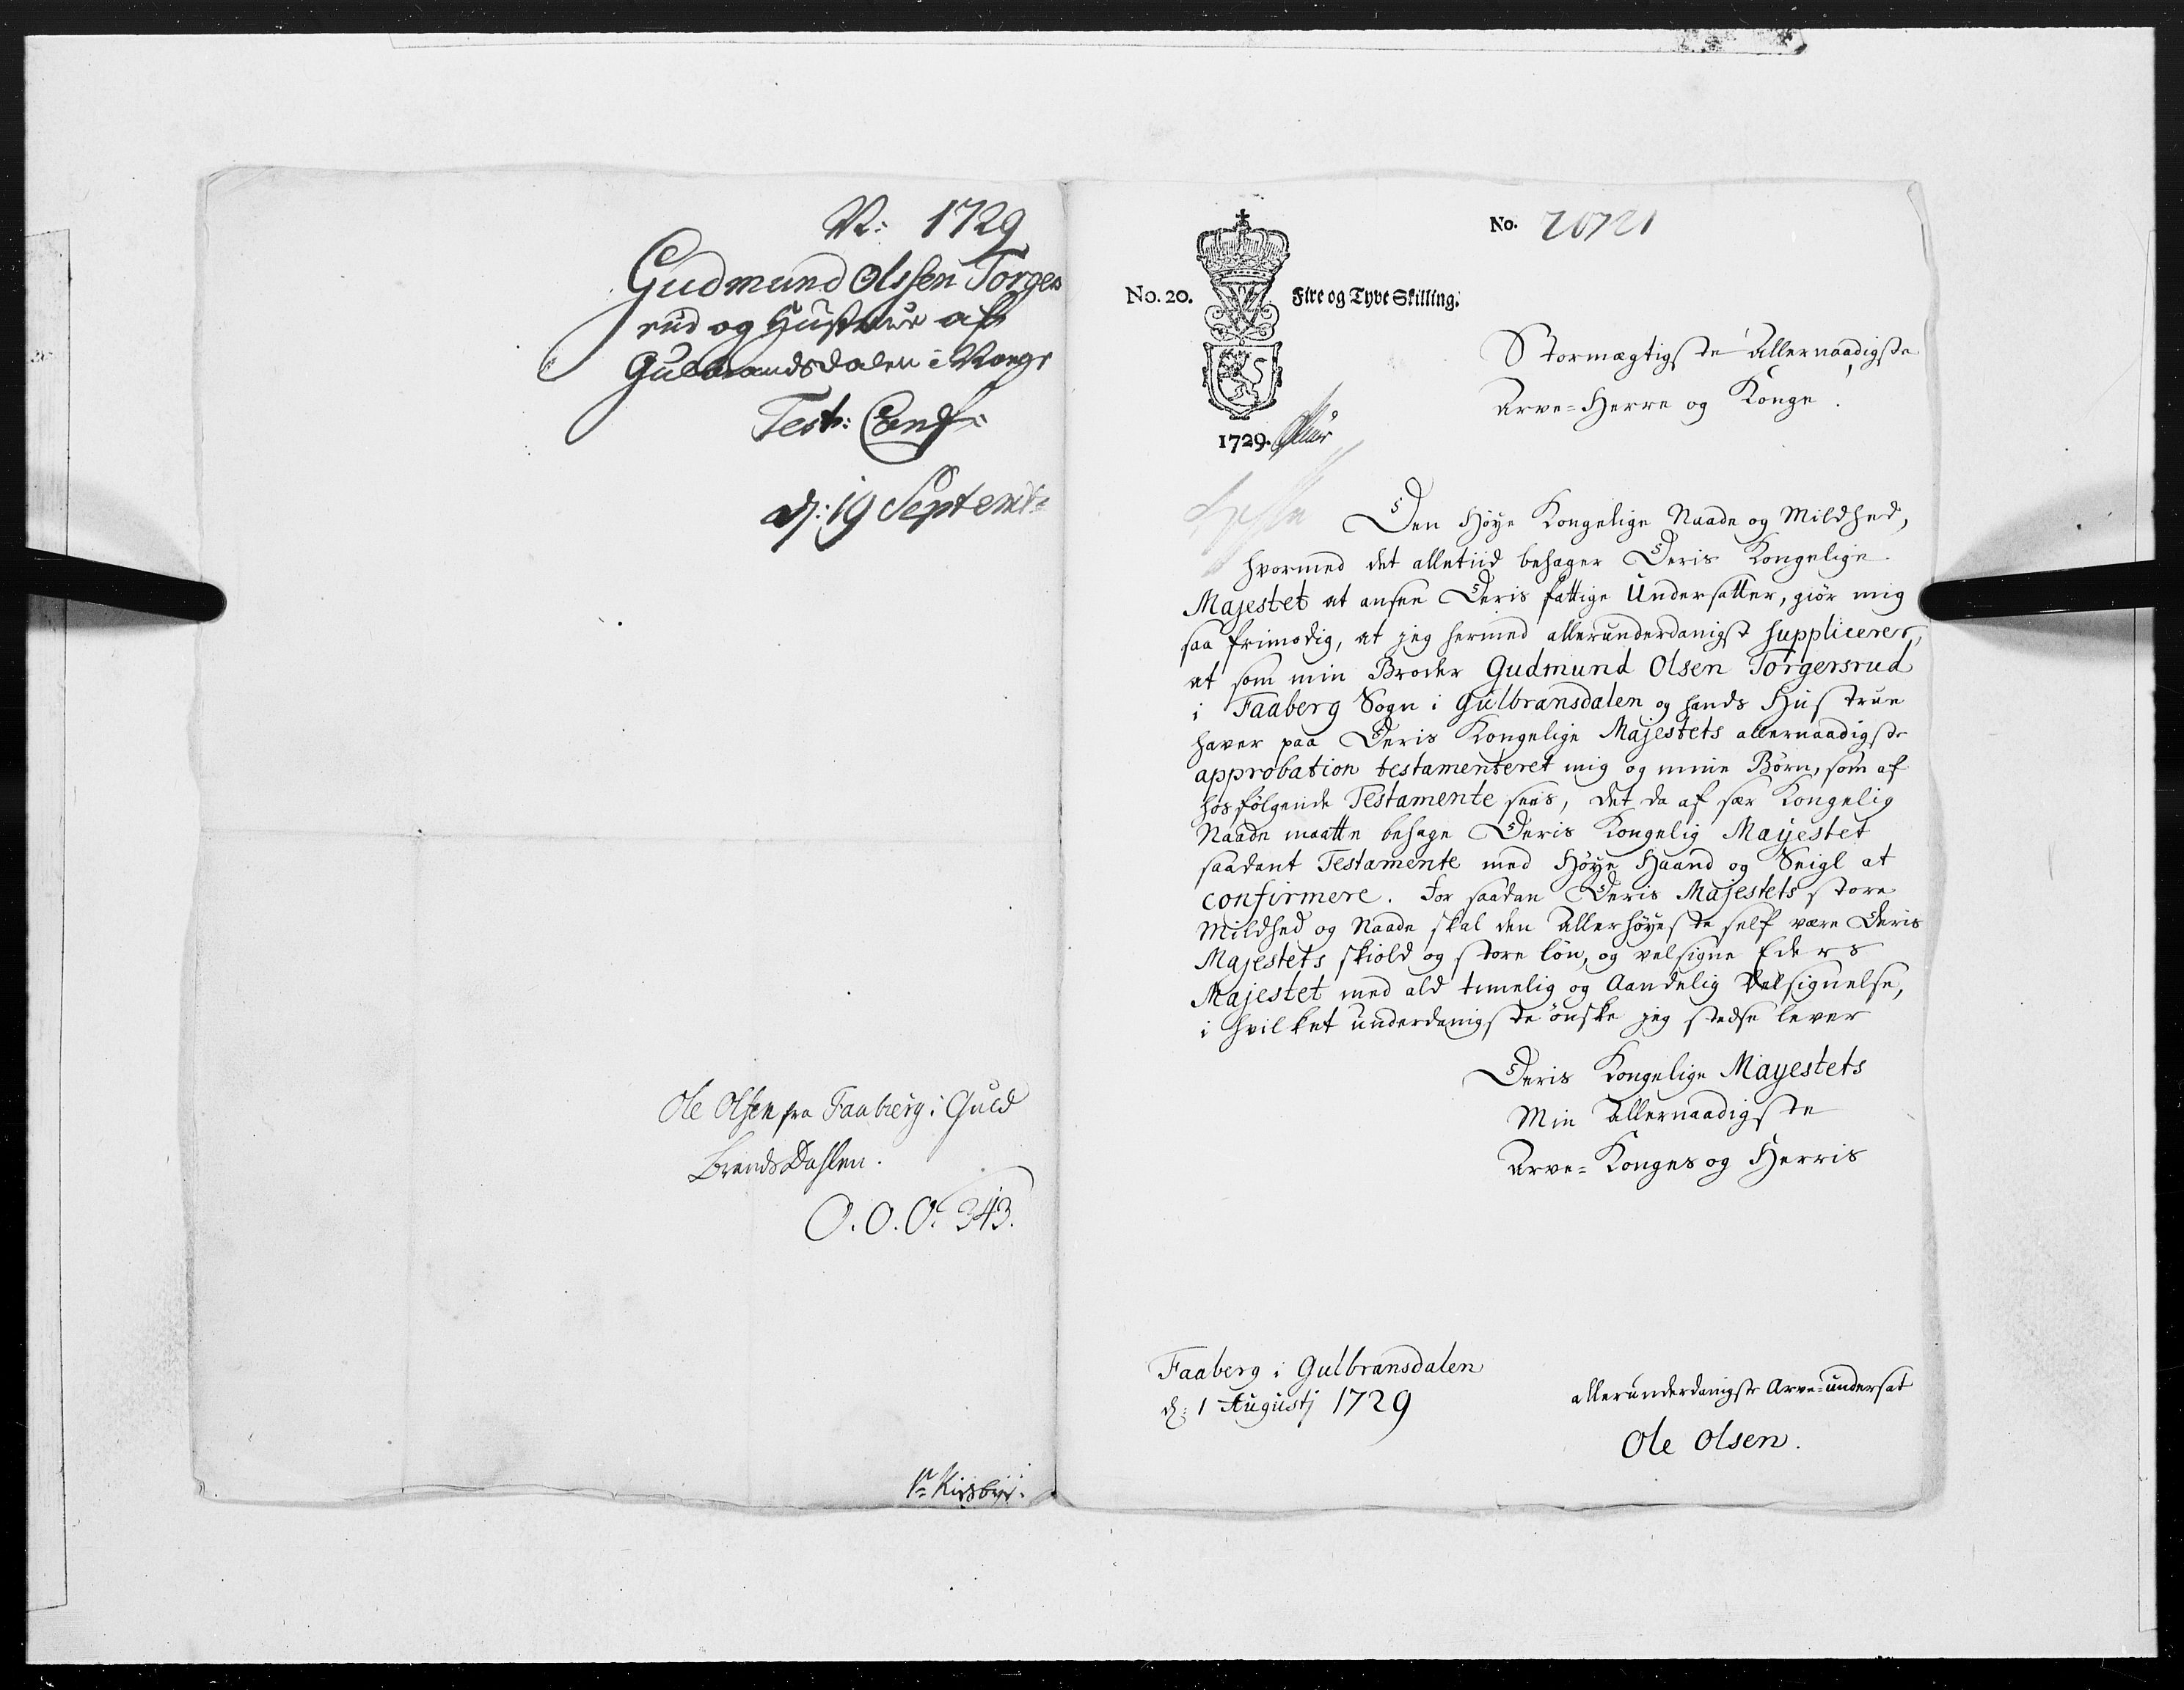 N: 1729
Gudmund Olssen Torges
rud og Hustrue af
Gulbrandsdalen i Norge
Test: Conf:
d: 19 Septemb:
Ole Olsen fra Faaberg i Guld
brands Dahlen.
O. O. O. 343.
No. 20721
No. 20. Fire og Tyve Skilling.
1729.
Stormægtigste Allernaadigste
Arve-Herre og Konge!
Den Høye Kongelige Naade og Mildhed,
hvormed det alletiid behager Deris Kongelige
Majestet at ansee Deris fattige Undersatter, giør mig
saa frimodig, at jeg hermed allerunderdanigst supplicerer,
at som min Broder Gudmund Olsen Torgersrud
i Faaberg Sogn i Gulbransdalen og hands Hustrue
haver paa Deris Kongelige Majestets allernaadigste
approbation testamenteret mig og mine Børn, som af
hosfølgende Testamente sees, det da af sær Kongelig
Naade maatte behage Deris Kongelig Mayestet
saadant Testamente med Høye Haand og Seigl at
confirmere. For saadan Deris Majestets store
Mildhed og Naade skal den Allerhøyeste self være Deris
Majestets skiold og store løn, og velsigne Eders
Majestet med ald timelig og Aandelig Velsignelse,
i hvilket underdanigste ønske jeg stedse lever
Deris Kongelige Mayestets
Min Allernaadigste
Arve-Konges og Herris
Faaberg i Gulbransdalen
d: 1 Augustj 1729
allerunderdanigste Arve-undersat
Ole Olsen.